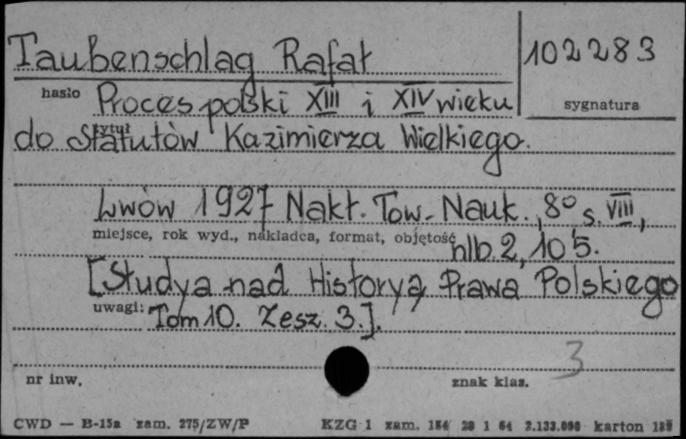 Taubenschlag Rafał 102283
hasło Proces polski XIII i XIV wieku sygnatura
tytuł do Statutów Kazimierza Wielkiego.
Lwów 1927 Nakł. Tow. Nauk. 8° s. VIII,
miejsce, rok wyd., nakładca, format, objętość nlb. 2, 105.
[Studya nad Historyą Prawa Polskiego
uwagi: Tom 10. Zesz. 3.].
3
nr inw. znak klas.
CWD — B-15a zam. 275/ZW/P KZG 1 zam. 184 28 1 64 2.133.000 karton